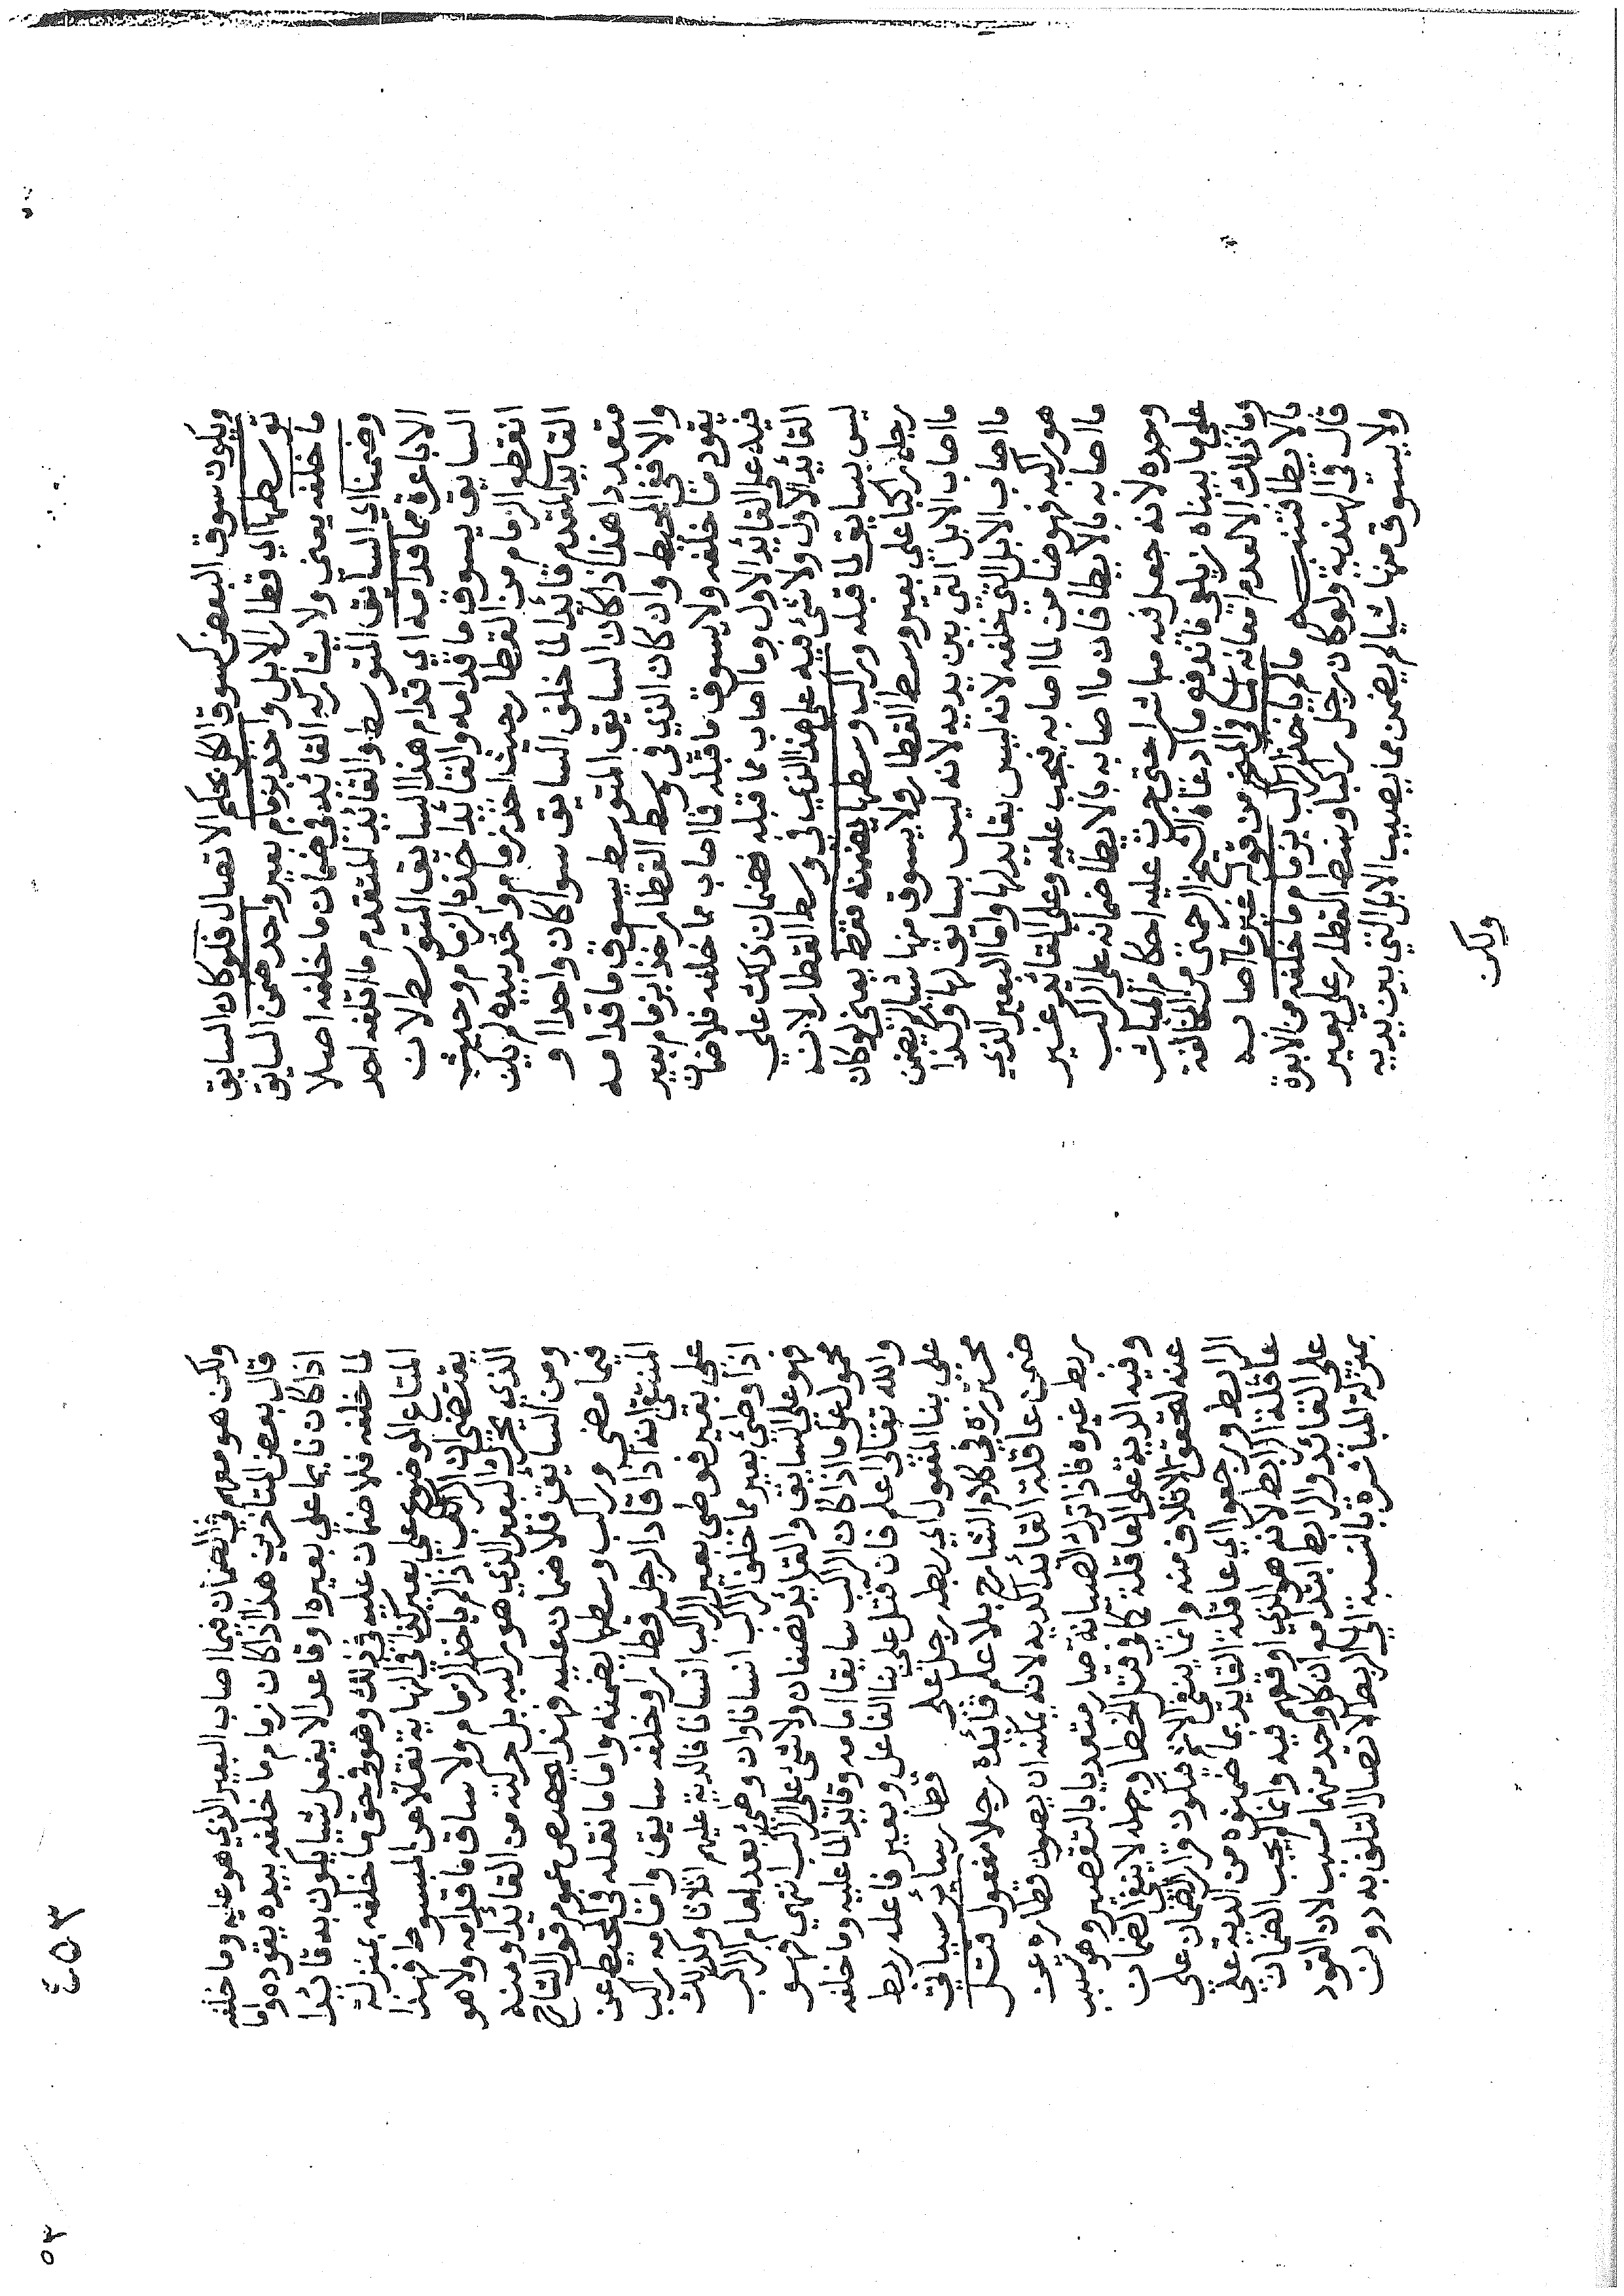 ويكون سوق البعض كسوق الكل بحكم الاتصال فلو كان السايق
يتوسطها اي قطار الابل واخذ بزمام بعير واحد ضمن السايق
ما خلفه يعني ولا يشاركه القائد في ضمان ما خلفه اصلا
وضمنا اي السايق المتوسط والقايد المتقدم ما اتلفه احد
الاباعرة مما قدامه اي قدام هذا السايق المتوسط لان
السايق يسوق ما قدامه والقائد اخذ بالزمام وحيث
انقطع الزمام من القطار حيث اخذ بزمام واحد بيده لم يكن
القايد المقدم قائدا لما خلف السايق سوا كان واحدا او
متعددا هذا اذا كان السايق المتوسط يسوق ما قدامه
والا ففي المحيط وان كان الذي في وسط القطار اخذ بزمام بعير
يقود ما خلفه ولا يسوق ما قبله فما اصاب مما خلفه فلا ضمان
فيه على القائد الاول وما اصاب مما قبله فضمان ذلك علي
القائد الاول ولا شي فيه على هذا الذي في وسط القطار لانه
ليس بسايق لما قبله وراكب وسطها يضمنه فقط يعني لو كان
رجل راكبا على بعير وسط القطار ولا يسوق منها شيا لم يضمن
ما اصاب الابل التي بين يديه لانه ليس بسايق لها وكذا
ما اصاب الابل التي خلفه لانه ليس بقايد لها واما البعير الذي
هو راكبه فهو ضامن لما اصابه فيجب عليه وعلى القائد غير
ما اصابه بالايطا فان ما اصابه بالايطا ضمانه على الراكب
وحده لانه جعل فيه مباشرا حتى جرت عليه احكام المباشر
على ما بيناه زيلعي فاندفع ما ادعاه الشيخ الرحمتي من المخالفة
وما ذلك الا لعدم امعانه لما في المنح من قوله غير ما اصابه
بالايطا فتنبه ما لم ياخذ الراكب بزمام ما خلفه من الابعرة
قال في الهندية ولو كان رجل راكبا وسط القطار على بعير
ولا يسوق منها شيا لم يضمن مما يصيب الابل التي بين يديه
ولكن
٤٥٣
٥٣
ولكن هو معهم في الضمان فيما اصاب البعير الذي هو عليه وما خلفه
قال بعض المتاخرين هذا اذا كان زمام ما خلفه بيده يقوده واما
اذا كان نايما على بعيره او قاعدا لا يفعل شيا يكون به قائدا
لما خلفه فلا ضمان عليه في ذلك وهو في حق ما خلفه بمنزلة
المتاع الموضوع على بعير كذا في النهاية نقلا عن المبسوط فهذا
يقتضي ان الراكب اذا لم ياخذ الزمام ولا ساق ما قدامه ولا هو
الذي يحرك البعير الذي هو راكبه بل حركته من القايد او منه
ومن السايق فلا ضمان عليه فهذا يخصص عموم قول الشارح
فيما مضي وراكب وسطها يضمنه واما ما نقله في المحيط عن
المنتقى انه اذا قاد الرجل قطارا وخلفه سايق وامامه راكب
على بعير فوطي بعير الراكب انسانا فالدية عليهم اثلاثا وكذلك
اذا وطي بعير مما خلف الراكب انسانا وان وطي بعد امام الراكب
فهو على السايق والقائد نصفان ولا شي على الراكب انتهي فهو
محمول على ما اذا كان الراكب سايقا امامه وقايدا لما عليه وما خلفه
والله تعالى اعلم فان قتل على بنا الفاعل وبعير فاعله ربط
على بنا المفعول اي ربطه رجل على قطار سائر سيأتي
محترزه في كلام الشارح بلا علم قائده رجلا مفعول قتل
ضمن عاقلة القائد الدية لانه يمكنه ان يصون قطاره عن
ربط غيره فاذا ترك الصيانة صار متعديا بالتقصير وهو سبب
وفيه الدية على العاقلة كما في قتل الخطا وجهله لا ينفي الضمان
عنه لتحقق الاتلاف منه وانما ينفي الاثم فيكون قرار الضمان على
الرابط ورجعوا اي عاقلة القايد بما ضمنوه من الدية على
عاقلة الرابط لانه هو الذي اوقعهم فيه وانما لم يجب الضمان
على القائد والرابط ابتدا مع ان كل واحد منهما مسبب لان القود
بمنزلة المباشرة بالنسبة الي الربط لاتصال التلف به دون